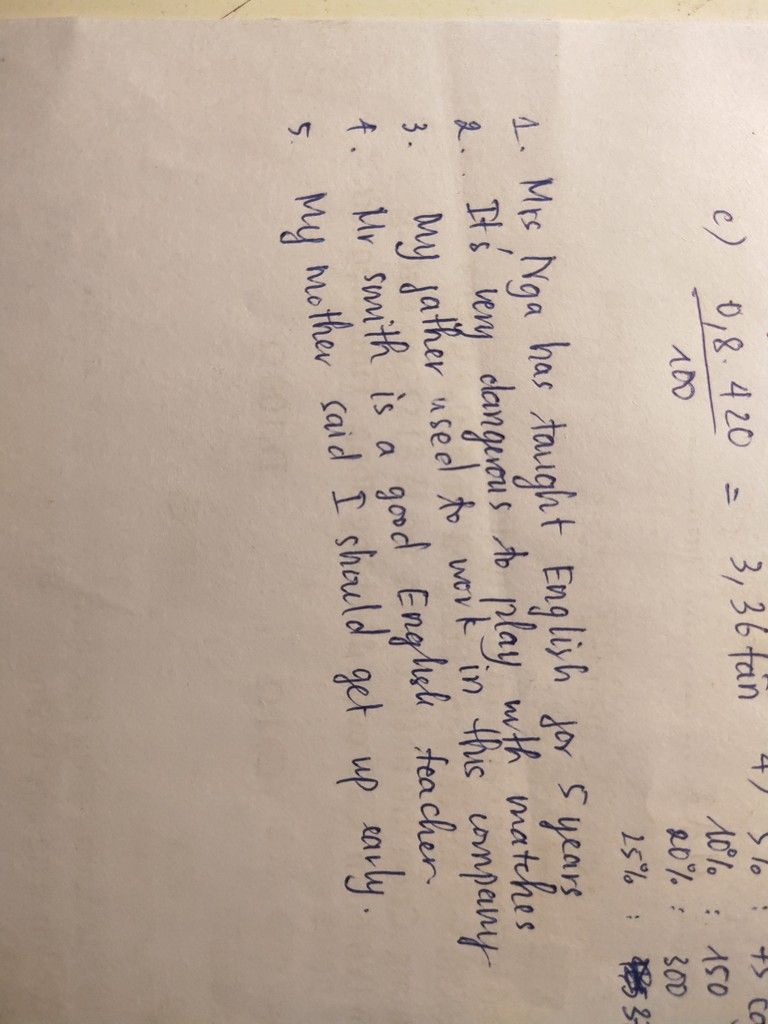 c) 0,8.420 / 100 = 3,36 tấn
4) 5% :
10% : 150
20% : 300
25% :
1. Mrs Nga has taught English for 5 years
2. It's very dangerous to play with matches
3. My father used to work in this company
4. Mr smith is a good English teacher
5. My mother said I should get up early.